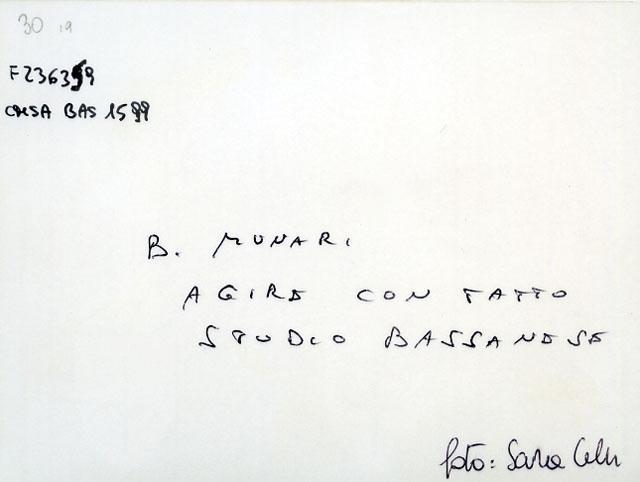 30 19
F236359
CMSA BAS 1599
B. MUNARI
AGIRE CON TATTO
STUDIO BASSANESE
foto: Sara